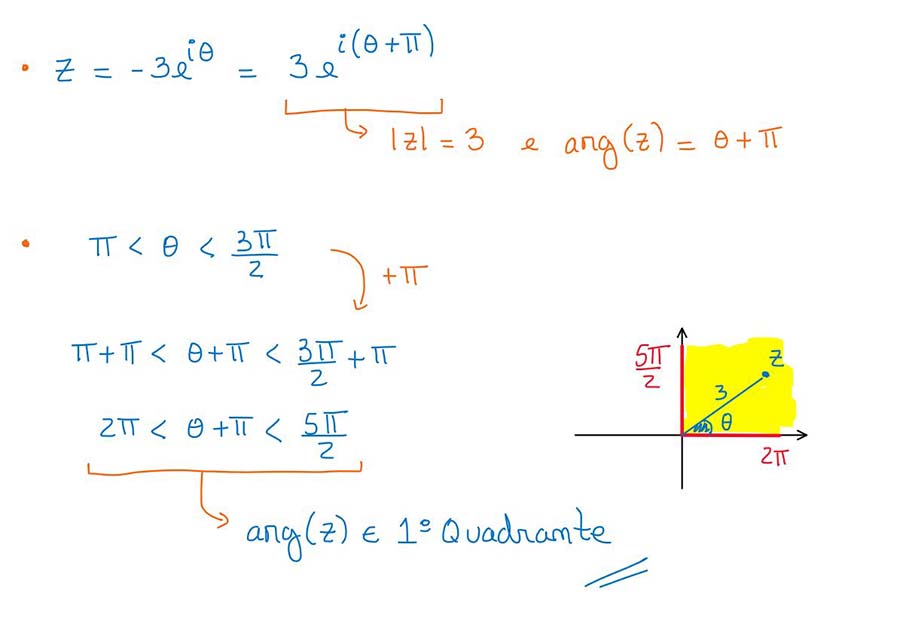 • z = -3e^{iθ} = 3e^{i(θ+π)}
|z| = 3 e arg(z) = θ + π
• π < θ < 3π/2
+π
π+π < θ+π < 3π/2 + π
2π < θ+π < 5π/2
arg(z) ∈ 1º Quadrante
5π/2
z
3
θ
2π